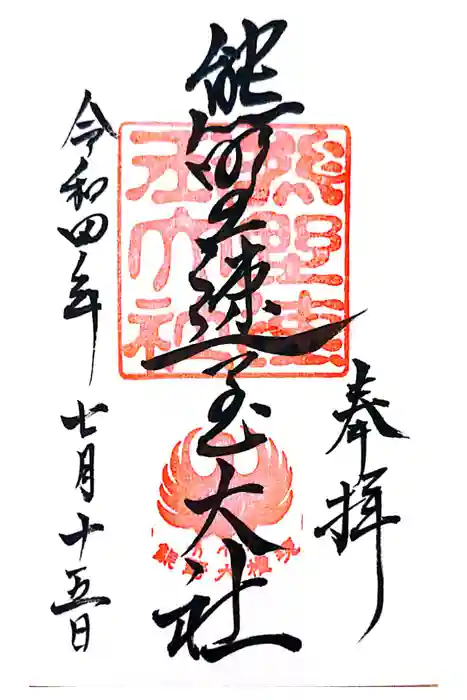 奉拝
熊野速玉大社
令和四年 七月十五日
熊野速玉大社